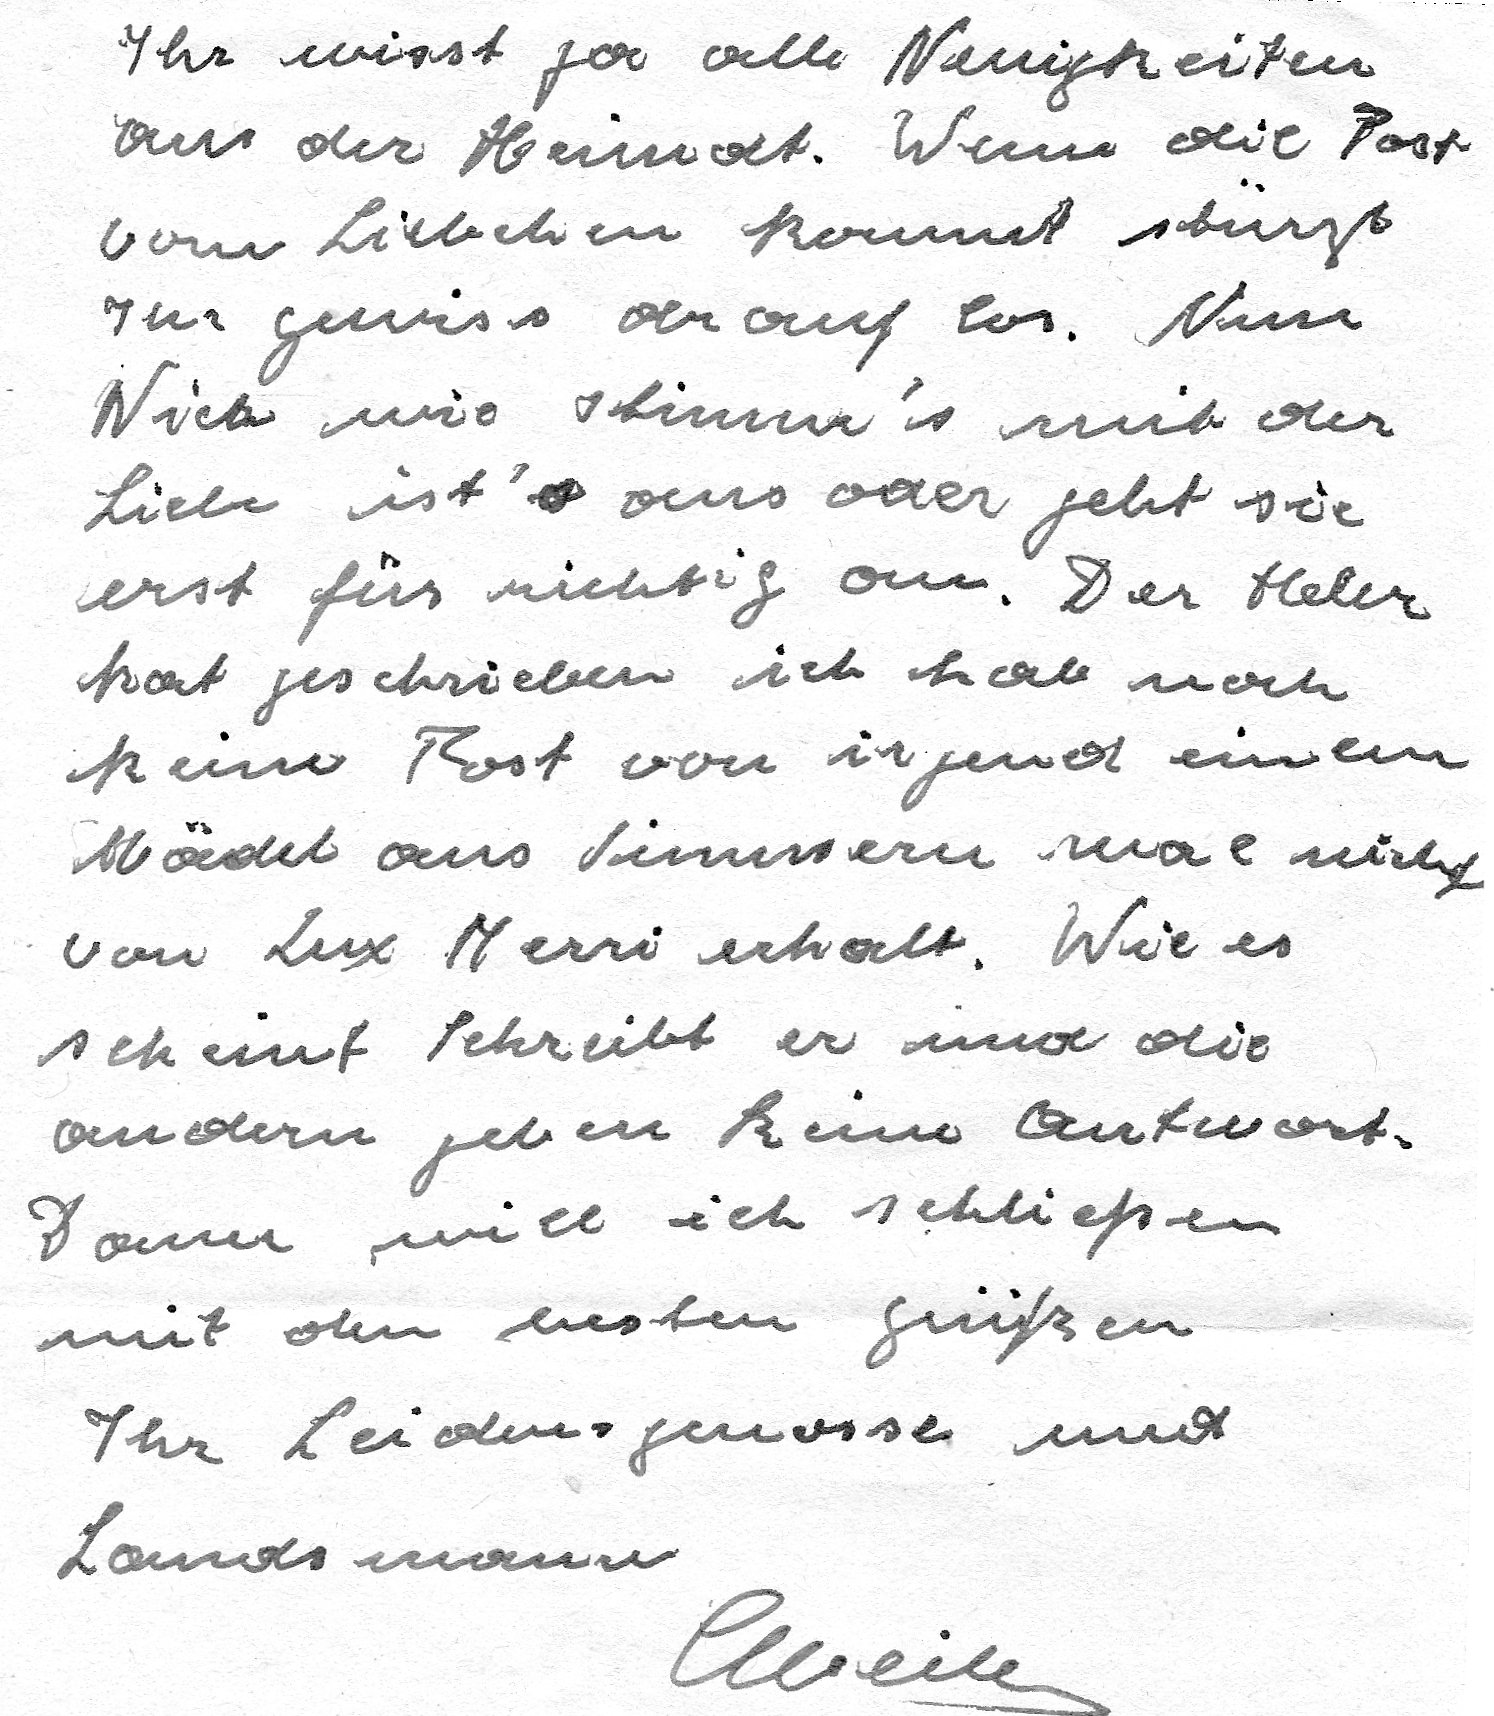 Ihr wisst ja alle Neuigkeiten
aus der Heimat. Wenn die Post
vom Liebchen kommt stürzt
Ihr gewiss drauf los. Nun
Nick wie stimm's mit der
Liebe ist's aus oder geht sie
erst fürs richtig an. Der
hat geschrieben ich hab noch
keine Post von irgend einem
Mädel aus Simmern mal nicht
von Lux Merri erhalt. Wie es
scheint schreibt er sind die
andern geben keine Antwort.
Dann will ich schließen
mit den besten grüßen
Ihr Leidensgenosse und
Landsmann